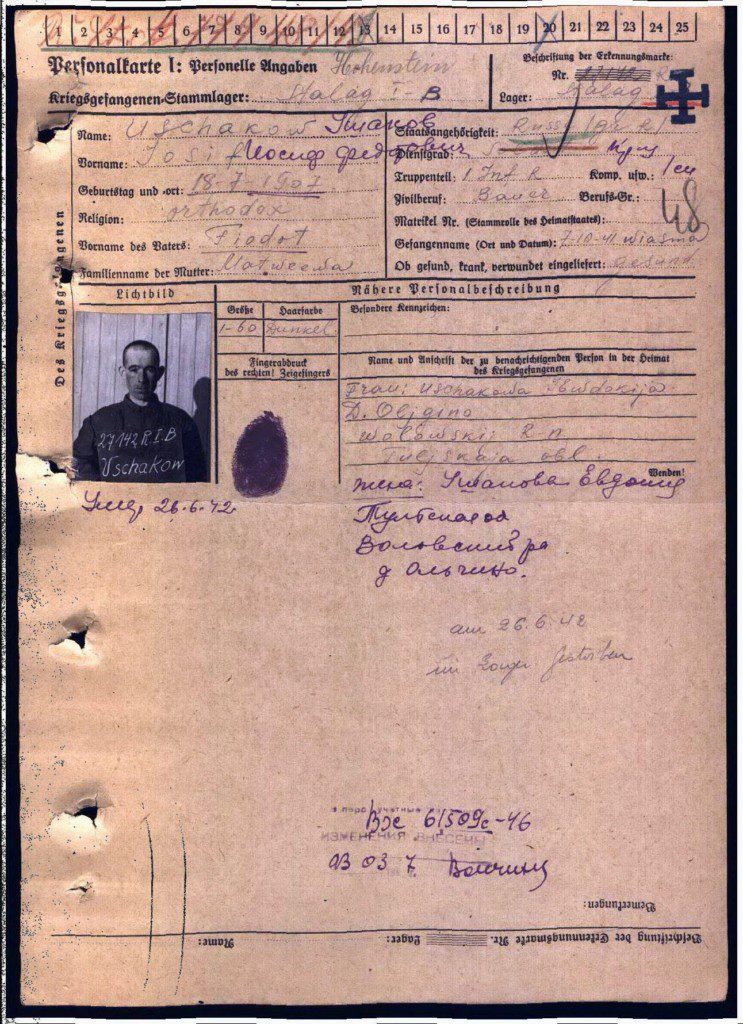 1 2 3 4 5 6 7 8 9 10 11 12 13 14 15 16 17 18 19 20 21 22 23 24 25
Personalkarte I: Personelle Angaben Hohenstein
Kriegsgefangenen-Stammlager: Stalag I-B
Beschriftung der Erkennungsmarke:
Nr. 27142
Lager: Stalag
Des Kriegsgefangenen
Name: Uschakow Ушаков
Vorname: Josif Иосиф Федотович
Geburtstag und -ort: 18.7.1907
Religion: orthodox
Vorname des Vaters: Fiodot
Familienname der Mutter: Matweewa
Staatsangehörigkeit:
Dienstgrad:
Truppenteil: 1 Inf R Komp. usw.:
Zivilberuf: Bauer Berufs-Gr.:
48
Matrikel Nr. (Stammrolle des Heimatstaates):
Gefangennahme (Ort und Datum): 7.10.41 Wiasma
Ob gesund, krank, verwundet eingeliefert: gesund
Lichtbild
Nähere Personalbeschreibung
Größe Haarfarbe Besondere Kennzeichen:
1-60 Dunkel
Fingerabdruck
des rechten! Zeigefingers
Name und Anschrift der zu benachrichtigenden Person in der Heimat
des Kriegsgefangenen
Frau: Uschakowa Ewdokija
D. Oljgino
Wolowski R-n
Tuljskaia obl.
Wenden!
27142 R.I.B
Uschakow
26.6.42.
жена: Ушакова Евдокия
Тульская
Воловский р-н
д Ольчино.
am 26.6.42
im Lager gestorben
Вх 61509с-46
ИЗМЕНЕНИЯ ВНЕСЕНЫ
Bemerkungen:
Name: Lager: Beschriftung der Erkennungsmarke Nr.